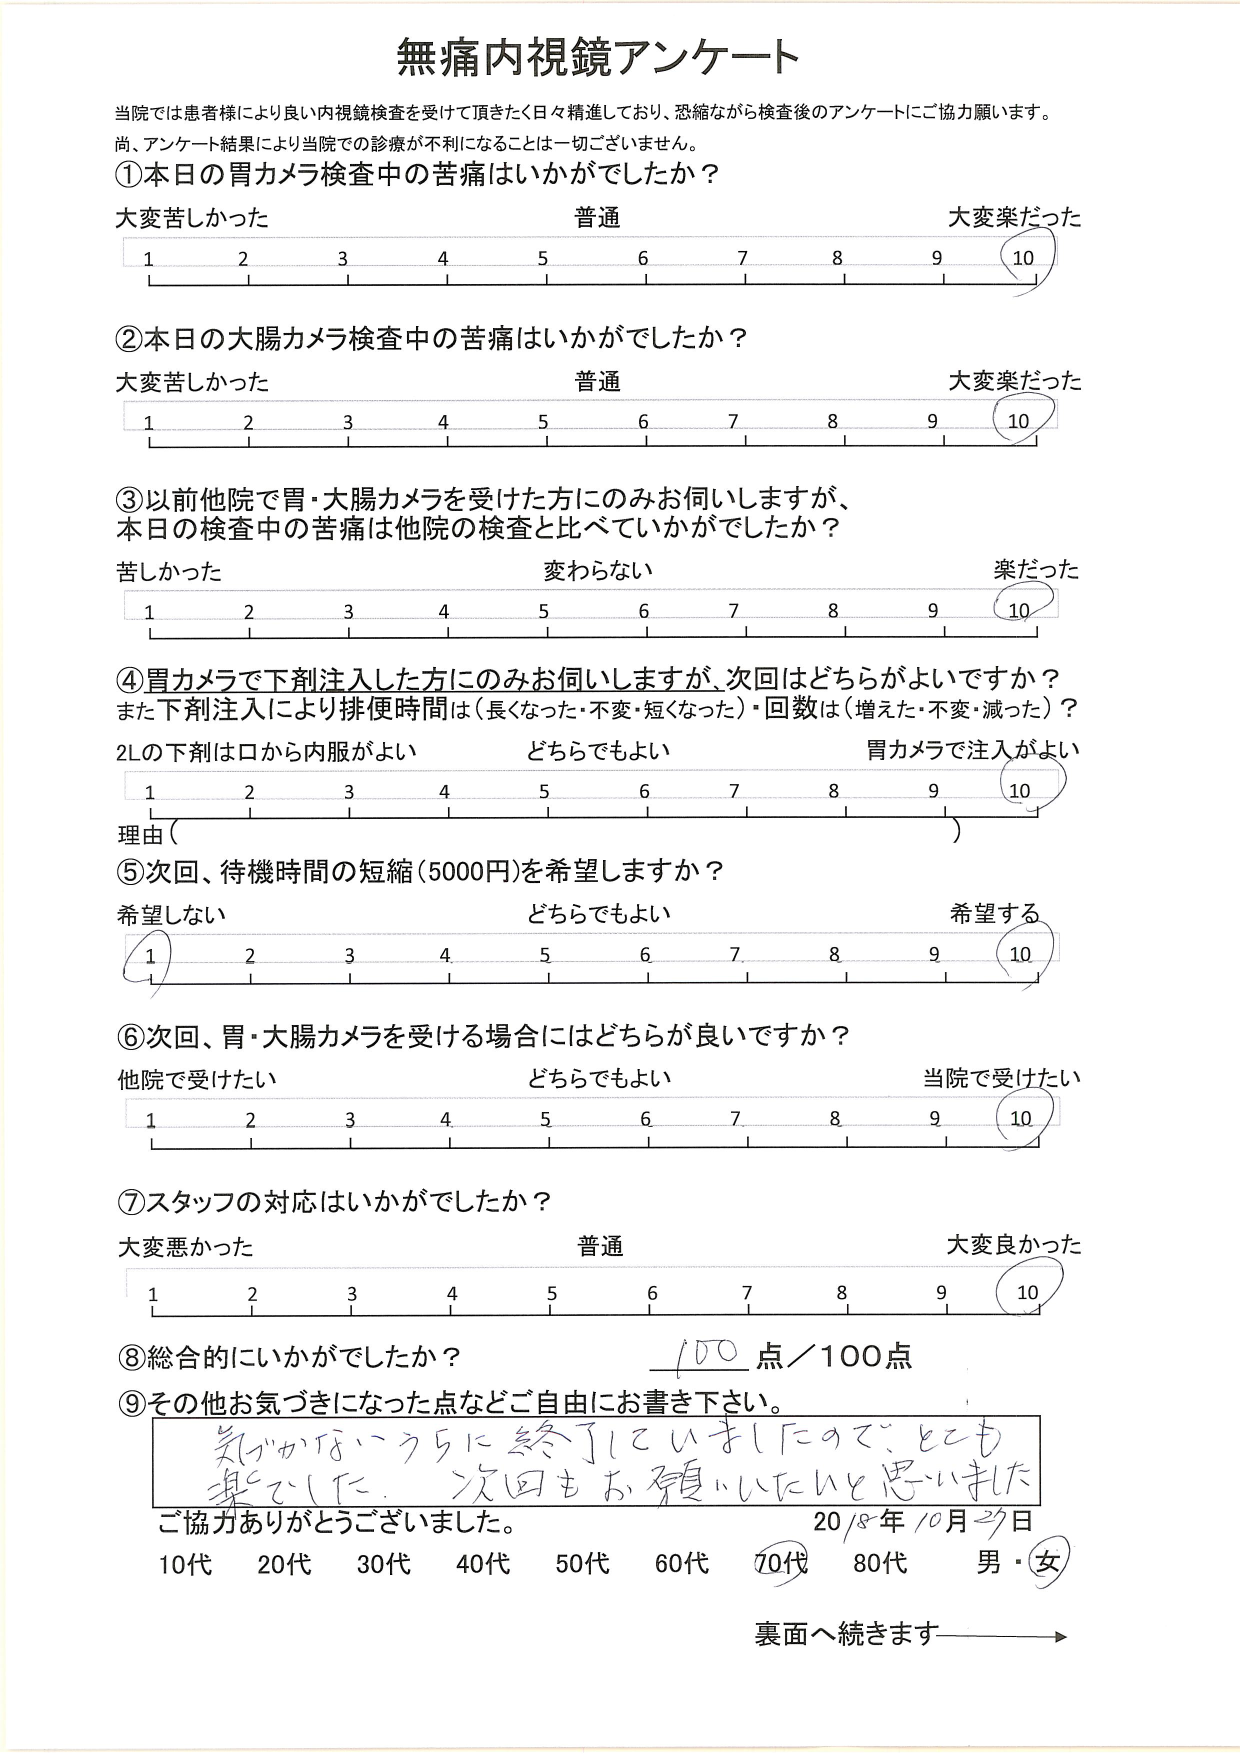 無痛内視鏡アンケート
当院では患者様により良い内視鏡検査を受けて頂きたく日々精進しており、恐縮ながら検査後のアンケートにご協力願います。
尚、アンケート結果により当院での診療が不利になることは一切ございません。
①本日の胃カメラ検査中の苦痛はいかがでしたか？
大変苦しかった 普通 大変楽だった
1 2 3 4 5 6 7 8 9 10
②本日の大腸カメラ検査中の苦痛はいかがでしたか？
大変苦しかった 普通 大変楽だった
1 2 3 4 5 6 7 8 9 10
③以前他院で胃・大腸カメラを受けた方にのみお伺いしますが、
本日の検査中の苦痛は他院の検査と比べていかがでしたか？
苦しかった 変わらない 楽だった
1 2 3 4 5 6 7 8 9 10
④胃カメラで下剤注入した方にのみお伺いしますが、次回はどちらがよいですか？
また下剤注入により排便時間は（長くなった・不変・短くなった）・回数は（増えた・不変・減った）？
2Lの下剤は口から内服がよい どちらでもよい 胃カメラで注入がよい
1 2 3 4 5 6 7 8 9 10
理由（ ）
⑤次回、待機時間の短縮（5000円）を希望しますか？
希望しない どちらでもよい 希望する
1 2 3 4 5 6 7 8 9 10
⑥次回、胃・大腸カメラを受ける場合にはどちらが良いですか？
他院で受けたい どちらでもよい 当院で受けたい
1 2 3 4 5 6 7 8 9 10
⑦スタッフの対応はいかがでしたか？
大変悪かった 普通 大変良かった
1 2 3 4 5 6 7 8 9 10
⑧総合的にいかがでしたか？ 100 点／100点
⑨その他お気づきになった点などご自由にお書き下さい。
気づかないうちに終了していましたので、とても
楽でした. 次回もお願いいたいと思いました
ご協力ありがとうございました。 2018年10月27日
10代 20代 30代 40代 50代 60代 70代 80代 男・女
裏面へ続きます